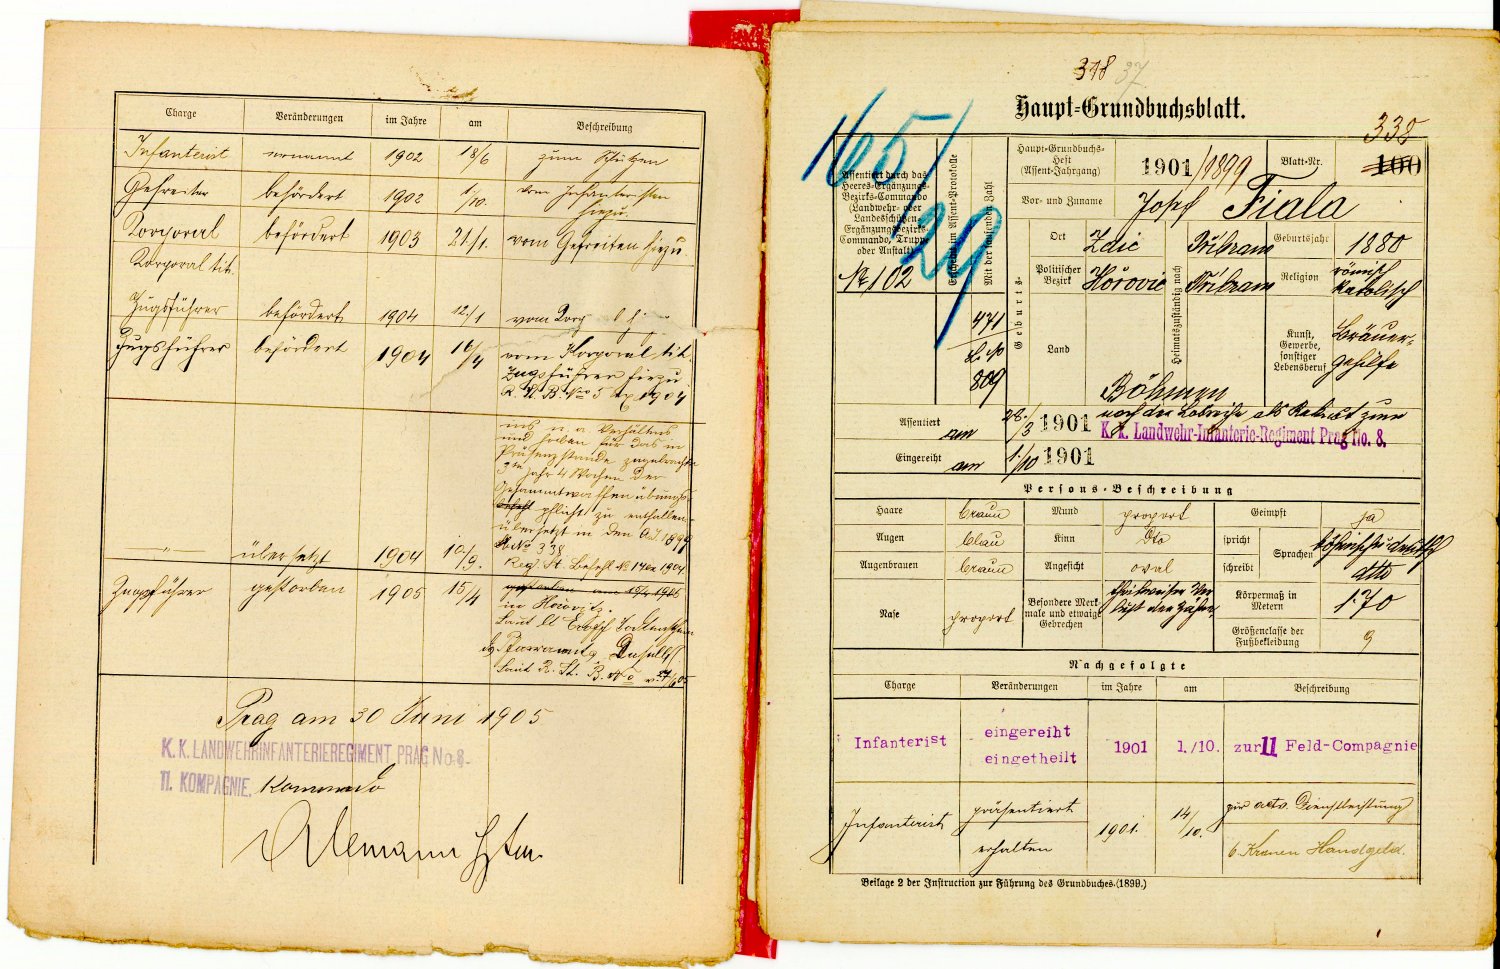 Charge Veränderungen im Jahre am Beschreibung
Infanterist ernannt 1902 18/6 zum Schützen
Gefreiter befördert 1902 1/10. vom Infanteristen
hiezu.
Korporal befördert 1903 21/1. vom Gefreiten hiezu.
Korporal tit.
Zugsführer befördert 1904 12/1 vom
Zugsführer befördert 1904 16/4 vom Korporal tit.
Zugsführer hiezu
R. St. B. No 5 ex 1904
und haben für das im
Präsenzstande zugebrachte
Jahr 4 Wochen der
Gesammtwaffenübungs-
pflicht zu entfallen
übersetzt in den 1899
No 338
—"— übersetzt 1904 10/9. Reg. St. Befehl No 1904
Zugsführer gestorben 1905 15/4 gestorben am 1905
in Hořovitz.
Laut
Laut R. St. B. No v. 27/6 05
Prag am 30 Juni 1905
K. K. LANDWEHRINFANTERIEREGIMENT PRAG No 8.
11. KOMPAGNIE. Kommando
318 37
Haupt-Grundbuchsblatt.
165/29
338
Assentiert durch das
Heeres-Ergänzungs-
Bezirks-Commando
(Landwehr- oder
Landesschützen-
Ergänzungsbezirks-
Commando, Truppe
oder Anstalt)
No 102
Erscheint im Assent-Protokolle
Mit der laufenden Zahl
471
809
Haupt-Grundbuchs-
Heft
(Assent-Jahrgang)
1901/1899 Blatt-Nr. 100
Vor- und Zuname Josef Fiala
Geburts-
Ort Zdic
Politischer
Bezirk Hořovic
Land
Heimatszuständig nach
Příbram
Příbram
Böhmen
Geburtsjahr 1880
Religion römisch
katolisch
Kunst,
Gewerbe,
sonstiger
Lebensberuf
Bräuer-
gehilfe
Assentiert am 28./3 1901 nach der Losreihe als Rekrut zum
K. k. Landwehr-Infanterie-Regiment Prag No. 8.
Eingereiht am 1./10 1901
Persons-Beschreibung
Haare braun Mund proport Geimpft ja
Augen blau Kinn Dto spricht Sprachen böhmisch u deutsch
Augenbrauen braun Angesicht oval schreibt dtto
Nase proport Besondere Merk-
male und etwaige
Gebrechen
theilweiser Ver-
lust der Zähne
Körpermaß in
Metern 1·70
Größenclasse der
Fußbekleidung 9
Nachgefolgte
Charge Veränderungen im Jahre am Beschreibung
Infanterist eingereiht
eingetheilt 1901 1./10. zur 11 Feld-Compagnie
Infanterist präsentiert 1901. 14/10. zur activ. Dienstleistung
erhalten 6 Kronen Handgeld.
Beilage 2 der Instruction zur Führung des Grundbuches. (1899.)